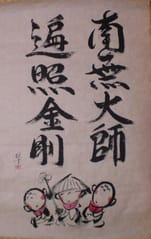 南無大師
遍照金剛